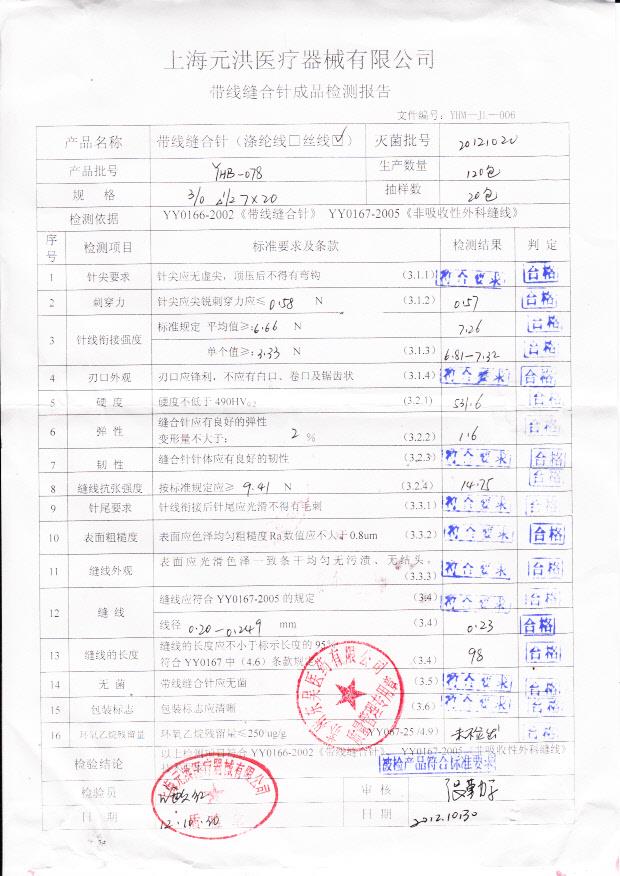 上海元洪医疗器械有限公司
带线缝合针成品检测报告
文件编号: YHM—JL—006
产品名称 带线缝合针（涤纶线□丝线☑） 灭菌批号 20121020
产品批号 YHB-078 生产数量 120包
规 格 3/0 △1/2 7×20 抽样数 20包
检测依据 YY0166-2002《带线缝合针》 YY0167-2005《非吸收性外科缝线》
序号 检测项目 标准要求及条款 检测结果 判 定
1 针尖要求 针尖应无虚尖，顶压后不得有弯钩 (3.1.1) 符合要求 合格
2 刺穿力 针尖应尖锐刺穿力应≤ 0.58 N (3.1.2) 0.57 合格
3 针线衔接强度 标准规定 平均值≥: 6.66 N 7.26 合格
单个值≥: 3.33 N (3.1.3) 6.81-7.32 合格
4 刃口外观 刃口应锋利，不应有白口、卷口及锯齿状 (3.1.4) 符合要求 合格
5 硬 度 硬度不低于 490HV0.2 (3.2.1) 531.6 合格
6 弹 性 缝合针应有良好的弹性
变形量不大于: 2 % (3.2.2) 1.6 合格
7 韧 性 缝合针针体应有良好的韧性 (3.2.3) 符合要求 合格
8 缝线抗张强度 按标准规定应≥ 9.41 N (3.2.4) 14.25 合格
9 针尾要求 针线衔接后针尾应光滑不得有毛刺 (3.3.1) 符合要求 合格
10 表面粗糙度 表面应色泽均匀粗糙度 Ra 数值应不大于 0.8um (3.3.2) 符合要求 合格
11 缝线外观 表面应光滑色泽一致条干均匀无污渍、无结头。
(3.3.3) 符合要求 合格
12 缝 线 缝线应符合 YY0167-2005 的规定 (3.4) 符合要求 合格
线径 0.20-0.249 mm (3.4) 0.23 合格
13 缝线的长度 缝线的长度应不小于标示长度的 95%
符合 YY0167 中（4.6）条款规 (3.4) 98 合格
14 无 菌 带线缝合针应无菌 (3.5) 符合要求 合格
15 包装标志 包装标志应清晰 (3.6) 符合要求 合格
16 环氧乙烷残留量 环氧乙烷残留量≤250 ug/g YY0167-25 /4.9) 未检出 合格
检验结论 以上检测项目符合 YY0166-2002《带线缝合针》、YY0167-2005《非吸收性外科缝线》
被检产品符合标准要求
检验员 审 核
日 期 12.10.30 日 期 2012.10.30
上海元洪医疗器械有限公司
医药有限公司